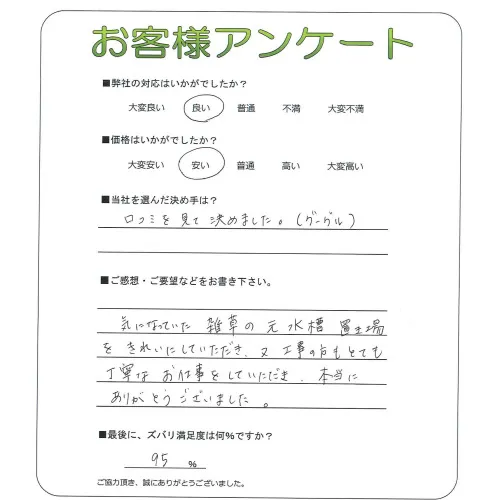 お客様アンケート
■弊社の対応はいかがでしたか？
大変良い 良い 普通 不満 大変不満
■価格はいかがでしたか？
大変安い 安い 普通 高い 大変高い
■当社を選んだ決め手は？
口コミを見て決めました。(グーグル)
■ご感想・ご要望などをお書き下さい。
気になっていた 雑草の元水槽置き場
をきれいにしていただき、又工事の方もとても
丁寧なお仕事をしていただき、本当に
ありがとうございました。
■最後に、ズバリ満足度は何%ですか？
95 %
ご協力頂き、誠にありがとうございました。